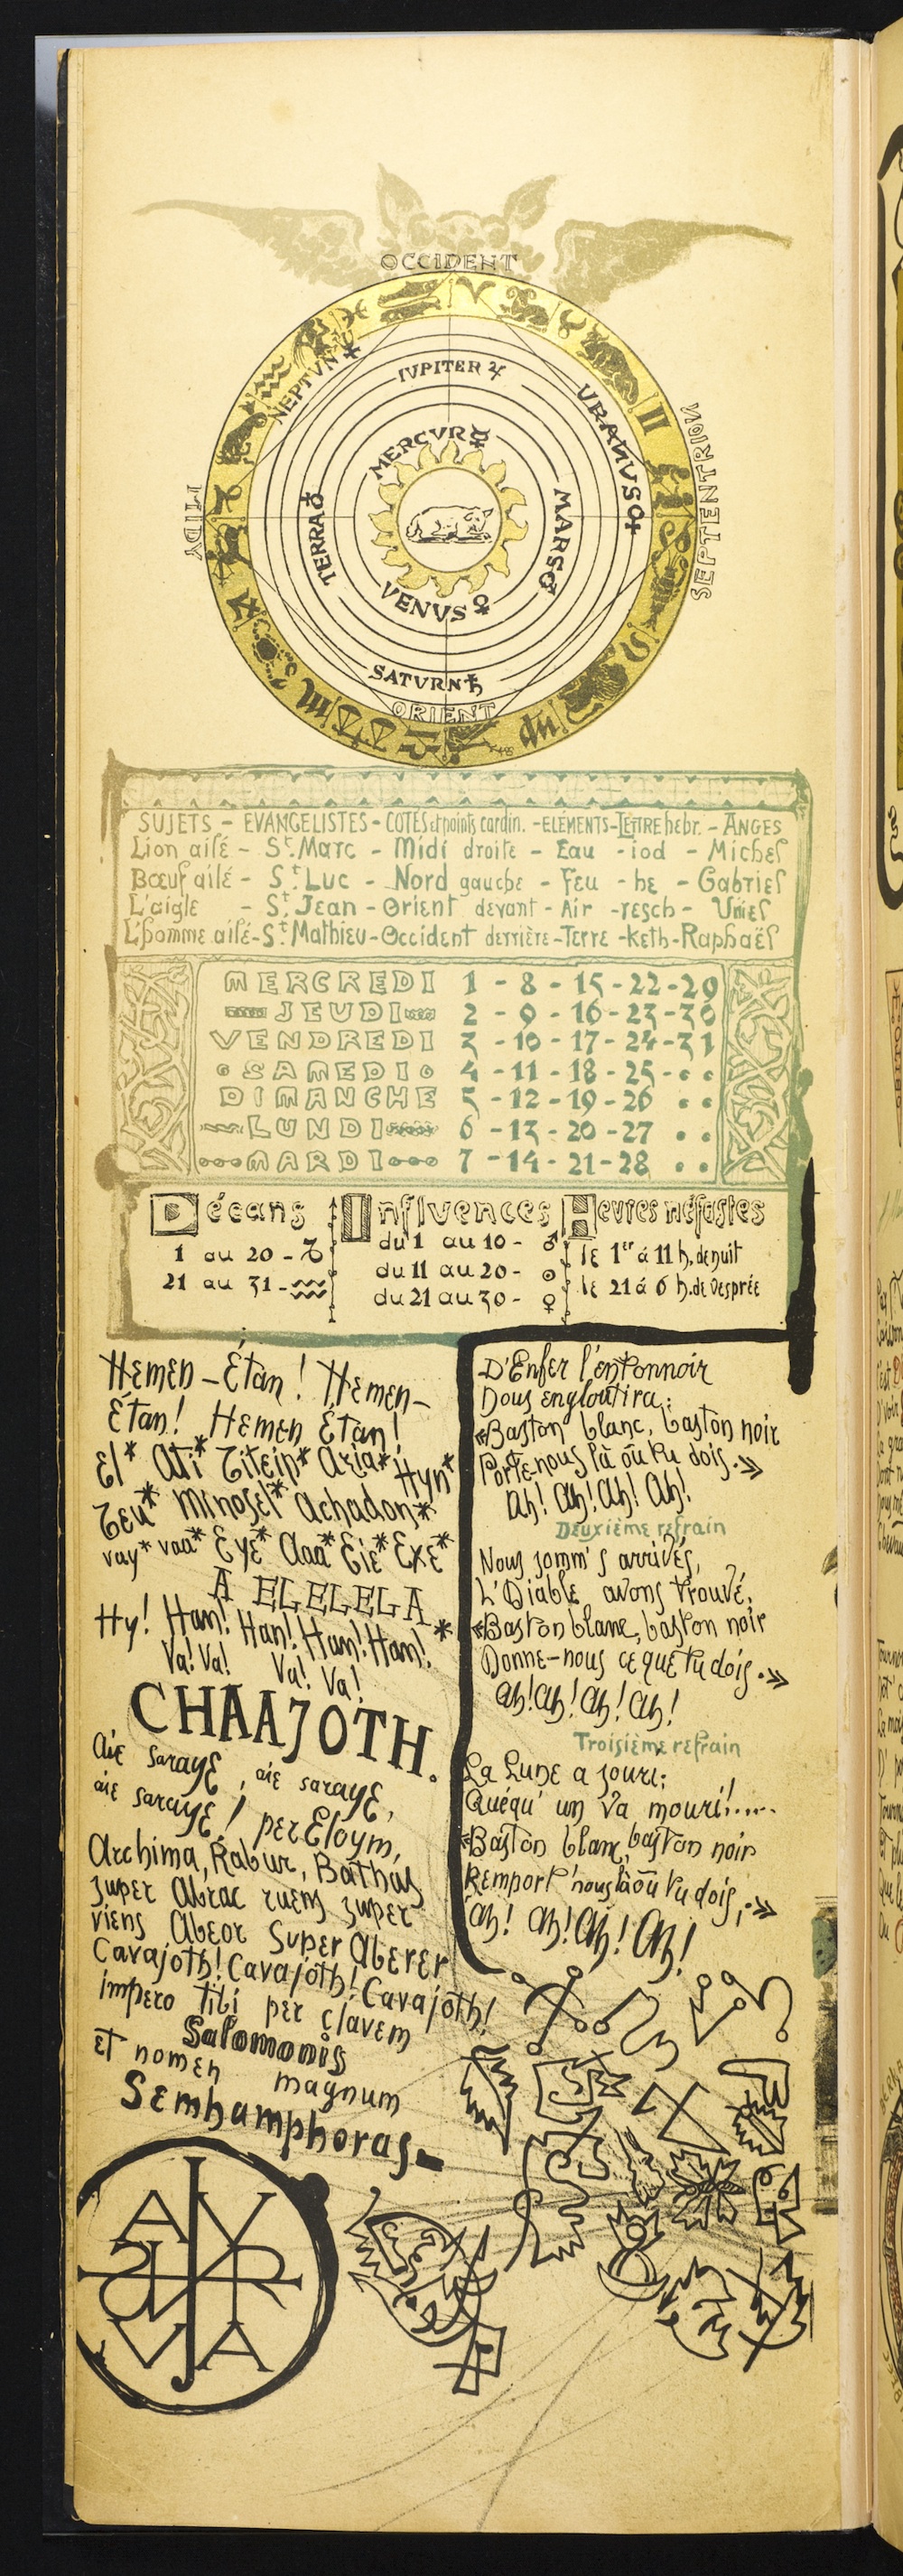 OCCIDENT
NEPTVN ♆
IVPITER ♃
URANUS
SEPTENTRION
MERCVR ☿
MIDY
TERRA ♁
MARS ♂
VENUS ♀
SATVRN ♄
ORIENT
SUJETS - EVANGELISTES - COTÉS et points cardin. - ELÉMENTS - LETTRE hebr. - ANGES
Lion ailé - St. Marc - Midi droite - Eau - iod - Michel
Bœuf ailé - St. Luc - Nord gauche - Feu - he - Gabriel
L'aigle - St. Jean - Orient devant - Air - resch - Uriel
L'homme ailé - St. Mathieu - Occident derrière - Terre - keth - Raphaël
MERCREDI 1 - 8 - 15 - 22 - 29
JEUDI 2 - 9 - 16 - 23 - 30
VENDREDI 3 - 10 - 17 - 24 - 31
SAMEDI 4 - 11 - 18 - 25 - • •
DIMANCHE 5 - 12 - 19 - 26 • •
LUNDI 6 - 13 - 20 - 27 • •
MARDI 7 - 14 - 21 - 28 • •
Décans
1 au 20 - ♑
21 au 31 - ♒
Influences
du 1 au 10 - ♂
du 11 au 20 - ☉
du 21 au 30 - ♀
Heures néfastes
le 1er à 11 h. de nuit
le 21 à 6 h. de vesprée
Hemen - Étan! Hemen -
Étan! Hemen Étan!
El* Ati* Titein* Azia* Hyn*
Teu* Minosel* Achadon*
vay* vaa* Eye* Aaa* Eie* Exe*
A ELELELA *
Hy! Hau! Hau! Hau! Hau!
Va! Va! Va! Va!
CHAAJOTH.
Aie saraye, aie saraye,
aie saraye! per Eloym,
Archima, Rabur, Bathas
super Abrac ruens super
viens Abeor Super Aberer
Cavajoth! Cavajoth! Cavajoth!
impero tibi per clavem
Salomonis
et nomen magnum
Semhamphoras.
D'Enfer l'entonnoir
Nous engloutira:
«Baston blanc, baston noir
Porte-nous là où tu dois.»
Ah! Ah! Ah! Ah!
Deuxième refrain
Nous somm's arrivés,
L'Diable avons trouvé.
«Baston blanc, baston noir
Donne-nous ce que tu dois.»
Ah! Ah! Ah! Ah!
Troisième refrain
La Lune a souri;
Quéqu' un va mouri!.....
«Baston blanc, baston noir
Remport' nous là où tu dois,»
Ah! Ah! Ah! Ah!